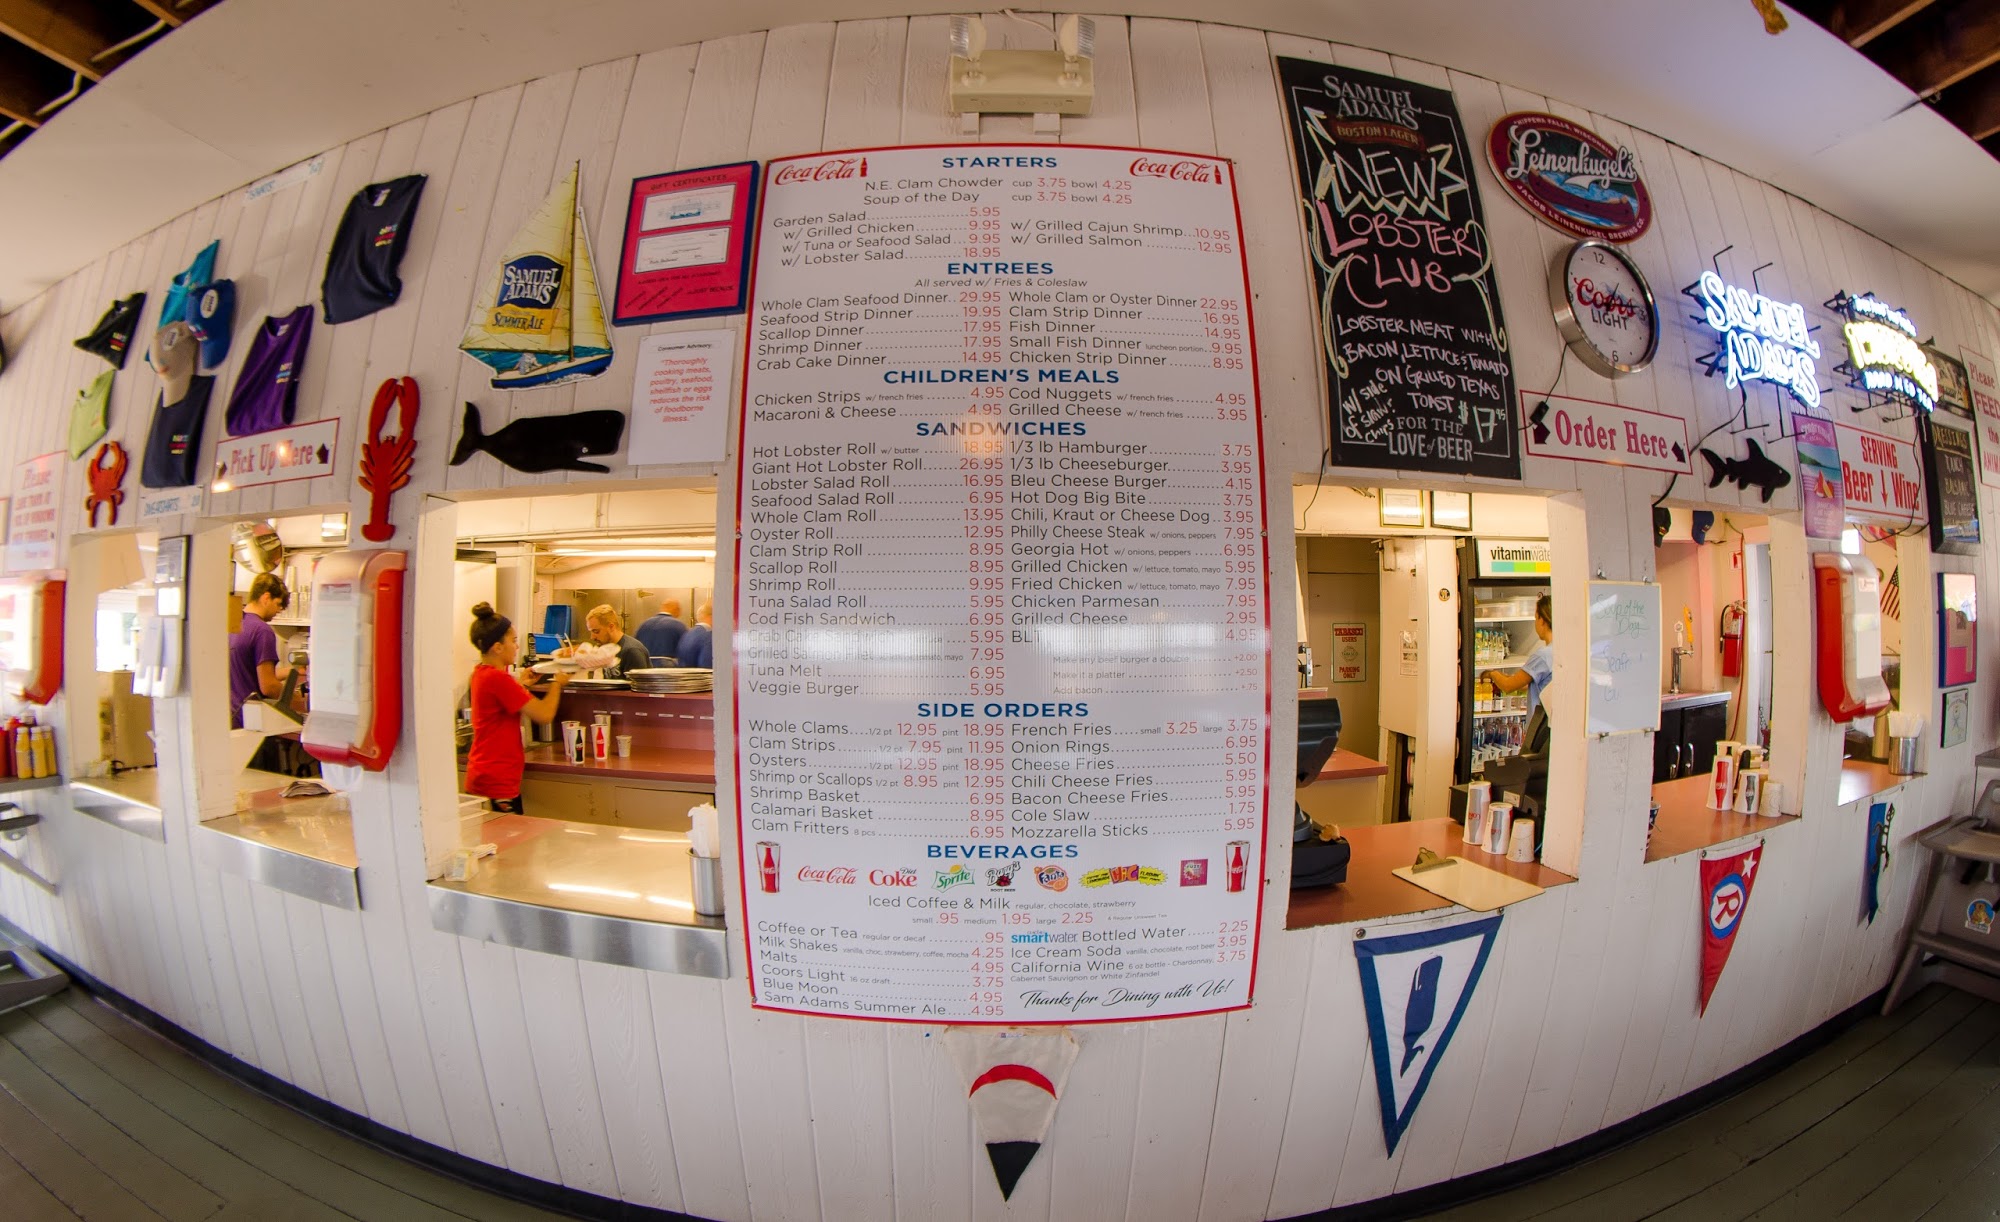 SHIRTS
Pick Up Here
SWEATSHIRTS
SAMUEL
ADAMS
SUMMER ALE
GIFT CERTIFICATES
Consumer Advisory
"Thoroughly
cooking meats,
poultry, seafood,
shellfish or eggs
reduces the risk
of foodborne
illness."
Coca-Cola STARTERS Coca-Cola
N.E. Clam Chowder cup 3.75 bowl 4.25
Soup of the Day cup 3.75 bowl 4.25
Garden Salad 5.95
w/ Grilled Chicken 9.95 w/ Grilled Cajun Shrimp 10.95
w/ Tuna or Seafood Salad 9.95 w/ Grilled Salmon 12.95
w/ Lobster Salad 18.95
ENTREES
All served w/ Fries & Coleslaw
Whole Clam Seafood Dinner 29.95 Whole Clam or Oyster Dinner 22.95
Seafood Strip Dinner 19.95 Clam Strip Dinner 16.95
Scallop Dinner 17.95 Fish Dinner 14.95
Shrimp Dinner 17.95 Small Fish Dinner luncheon portion 9.95
Crab Cake Dinner 14.95 Chicken Strip Dinner 8.95
CHILDREN'S MEALS
Chicken Strips w/ french fries 4.95 Cod Nuggets w/ french fries 4.95
Macaroni & Cheese 4.95 Grilled Cheese w/ french fries 3.95
SANDWICHES
Hot Lobster Roll w/ butter 18.95 1/3 lb Hamburger 3.75
Giant Hot Lobster Roll 26.95 1/3 lb Cheeseburger 3.95
Lobster Salad Roll 16.95 Bleu Cheese Burger 4.15
Seafood Salad Roll 6.95 Hot Dog Big Bite 3.75
Whole Clam Roll 13.95 Chili, Kraut or Cheese Dog 3.95
Oyster Roll 12.95 Philly Cheese Steak w/ onions, peppers 7.95
Clam Strip Roll 8.95 Georgia Hot w/ onions, peppers 6.95
Scallop Roll 8.95 Grilled Chicken w/ lettuce, tomato, mayo 5.95
Shrimp Roll 9.95 Fried Chicken w/ lettuce, tomato, mayo 7.95
Tuna Salad Roll 5.95 Chicken Parmesan 7.95
Cod Fish Sandwich 6.95 Grilled Cheese 2.95
Crab Cake 5.95 BLT 4.95
Grilled Salmon Filet tomato, mayo 7.95 Make any beef burger a double +2.00
Tuna Melt 6.95 Make it a platter +2.50
Veggie Burger 5.95 Add bacon +.75
SIDE ORDERS
Whole Clams 1/2 pt 12.95 pint 18.95 French Fries small 3.25 large 3.75
Clam Strips 1/2 pt 7.95 pint 11.95 Onion Rings 6.95
Oysters 1/2 pt 12.95 pint 18.95 Cheese Fries 5.50
Shrimp or Scallops 1/2 pt 8.95 pint 12.95 Chili Cheese Fries 5.95
Shrimp Basket 6.95 Bacon Cheese Fries 5.95
Calamari Basket 8.95 Cole Slaw 1.75
Clam Fritters 8 pcs 6.95 Mozzarella Sticks 5.95
BEVERAGES
Coca-Cola Diet Coke Sprite Barq's Fanta
Iced Coffee & Milk regular, chocolate, strawberry
small .95 medium 1.95 large 2.25
Coffee or Tea regular or decaf .95 smartwater Bottled Water 2.25
Milk Shakes vanilla, choc, strawberry, coffee, mocha 4.25 Ice Cream Soda vanilla, chocolate, root beer 3.95
Malts 4.95 California Wine 6 oz bottle - Chardonnay, 3.75
Cabernet Sauvignon or White Zinfandel
Coors Light 16 oz draft 3.75
Blue Moon 4.95
Sam Adams Summer Ale 4.95
Thanks for Dining with Us!
SAMUEL
ADAMS
BOSTON LAGER
NEW
LOBSTER
CLUB
LOBSTER MEAT WITH
BACON LETTUCE & TOMATO
ON GRILLED TEXAS
TOAST $17.95
W/ SIDE
OF
CHIPS
FOR THE
LOVE of BEER
CHIPPEWA FALLS, WISCONSIN
Leinenkugel's
JACOB LEINENKUGEL BREWING CO.
12
Coors
LIGHT
6
Order Here
SAMUEL
ADAMS
SERVING
Beer Wine
Please
FEED
the
vitaminwater
TABASCO
PARKING
ONLY
Soup of the
Day
R